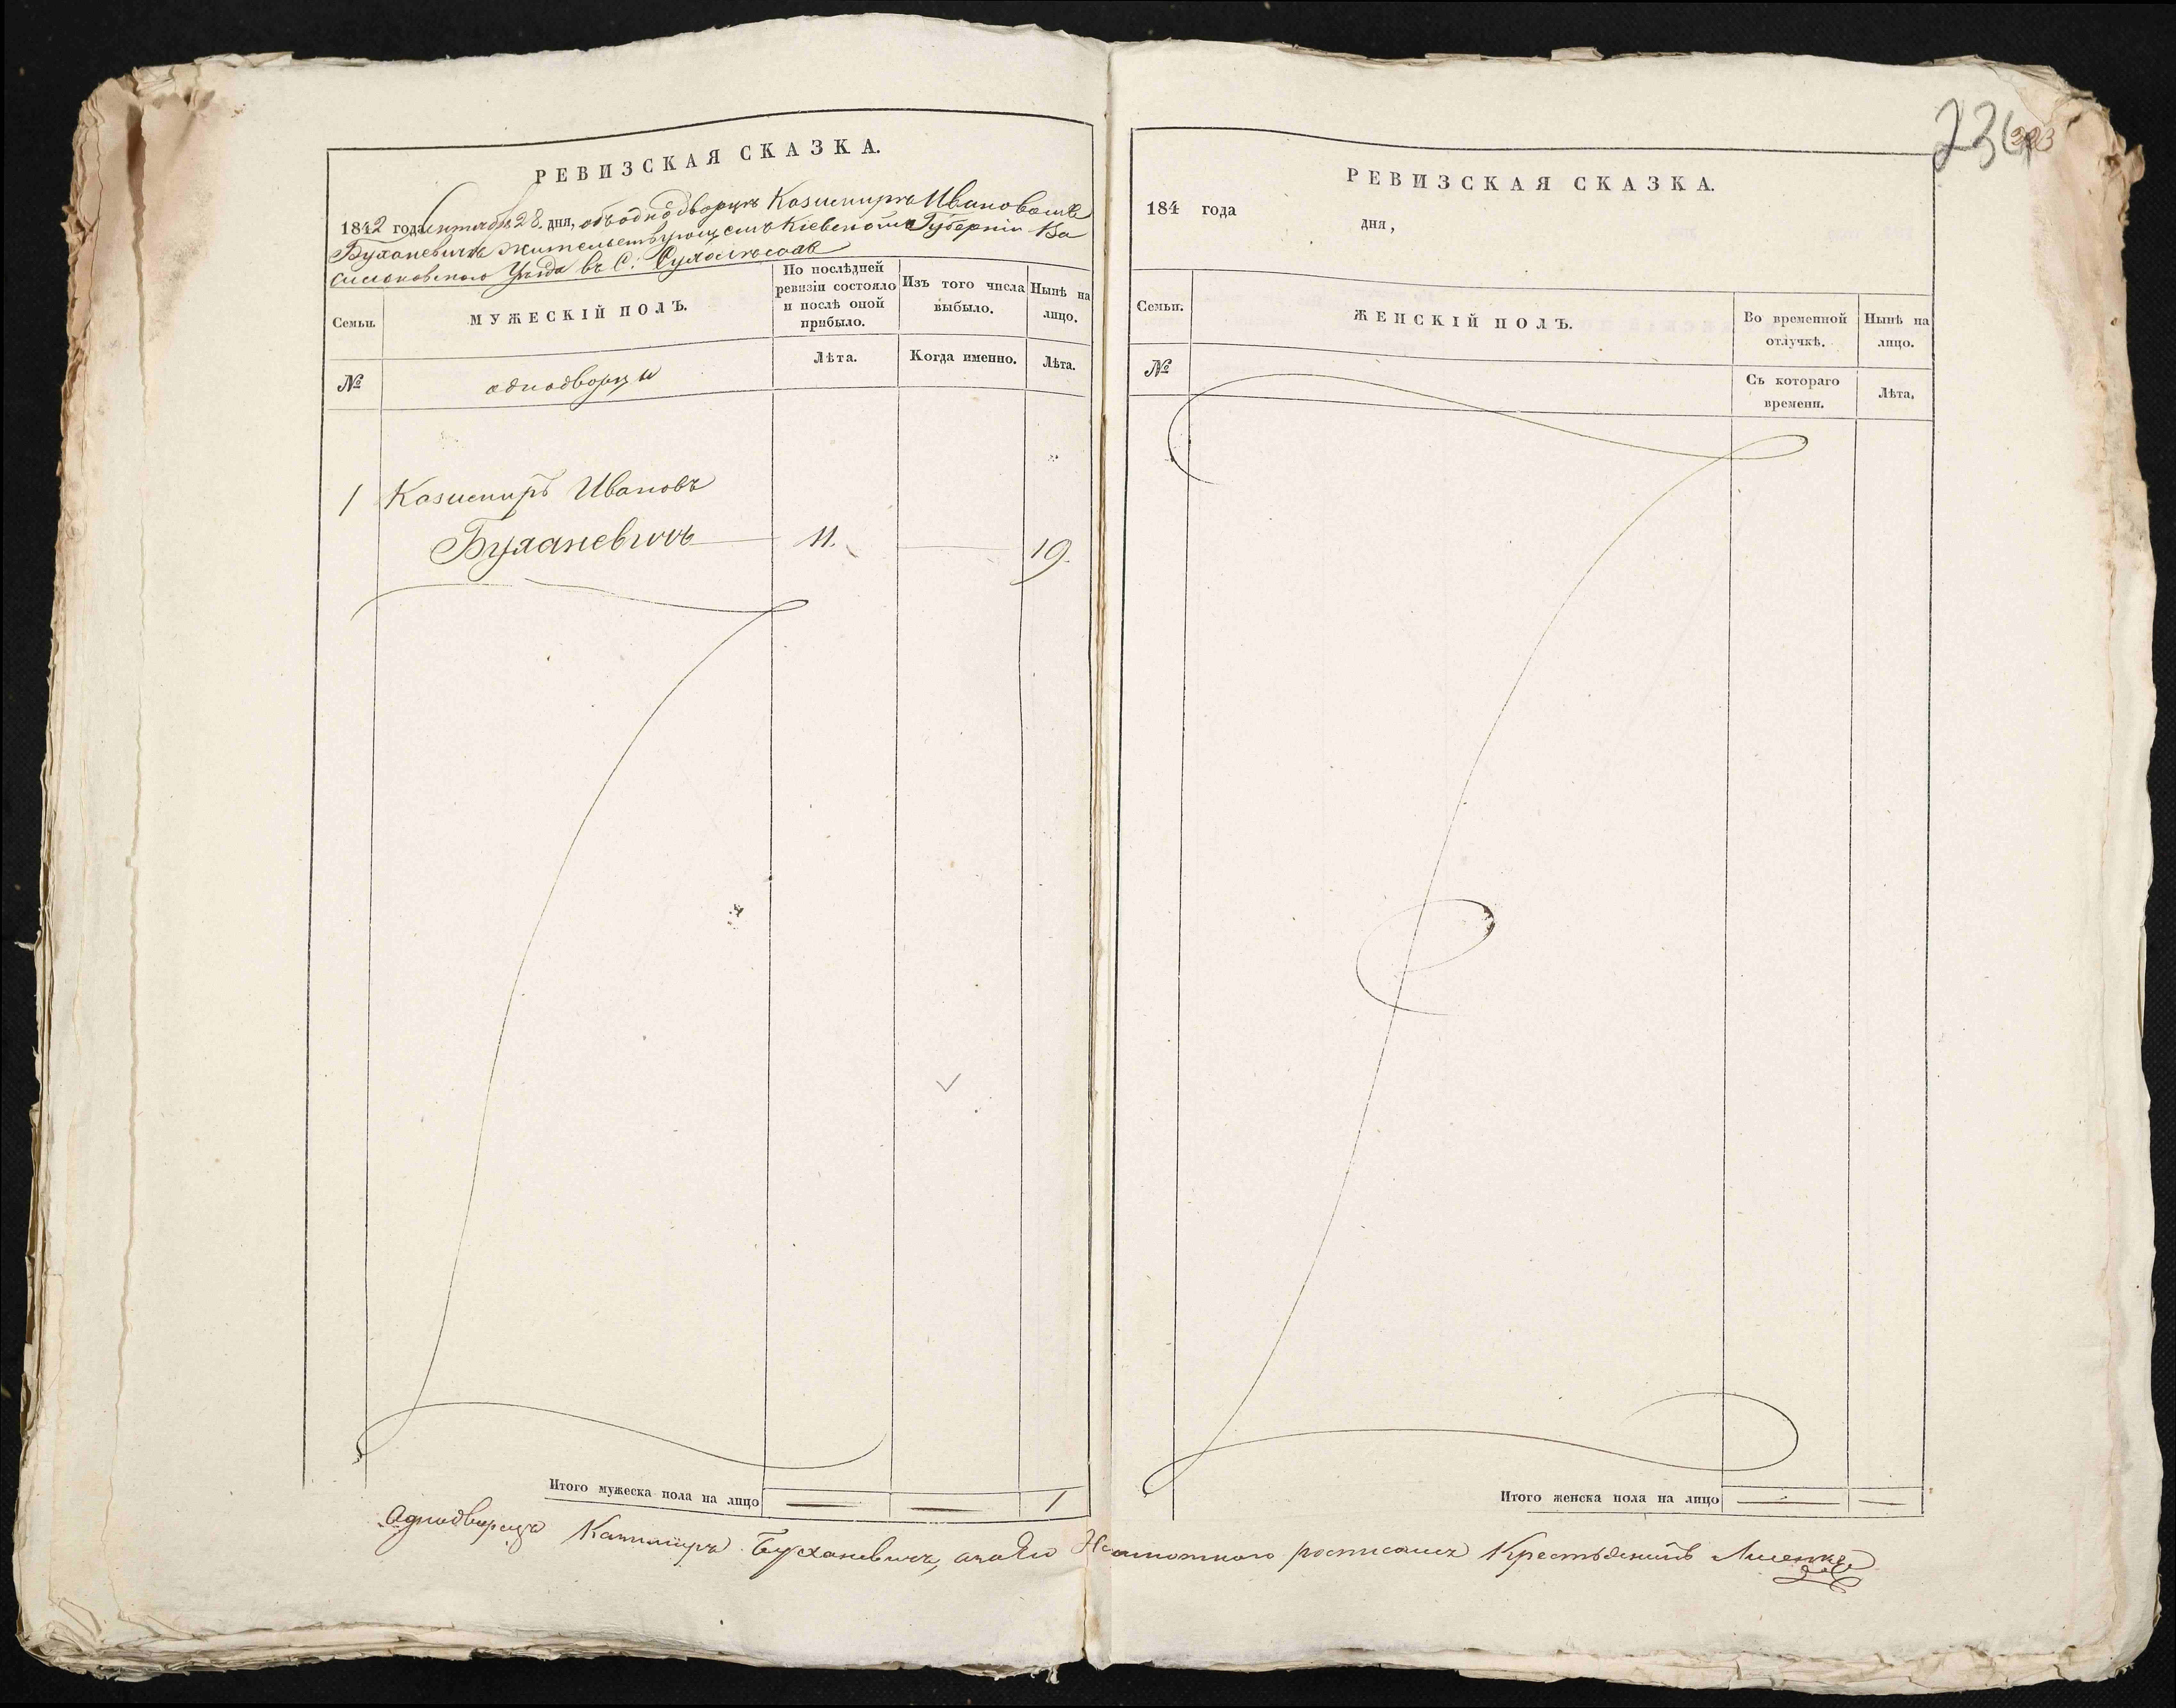 РЕВИЗСКАЯ СКАЗКА.
1842 года Сентября 28. дня, объ однодворцѣ Казимирѣ Ивановомъ
Буханевичѣ жительствующемъ Кіевской Губерніи Ва
сильковскаго Уѣзда въ С.
Семьи.
МУЖЕСКІЙ ПОЛЪ.
По послѣдней
ревизіи состояло
и послѣ оной
прибыло.
Изъ того числа
выбыло.
Нынѣ на
лицо.
№
однодворцы
Лѣта.
Когда именно.
Лѣта.
1 Казимиръ Ивановъ
Буханевичъ 11. 19.
Итого мужеска пола на лицо 1
234
РЕВИЗСКАЯ СКАЗКА.
184 года
дня,
Семьи.
ЖЕНСКІЙ ПОЛЪ.
Во временной
отлучкѣ.
Нынѣ на
лицо.
№
Съ котораго
времени.
Лѣта.
Итого женска пола на лицо
Однодворецъ Казимиръ Буханевичъ, а за Его Неграмотного росписался Крестьянинъ